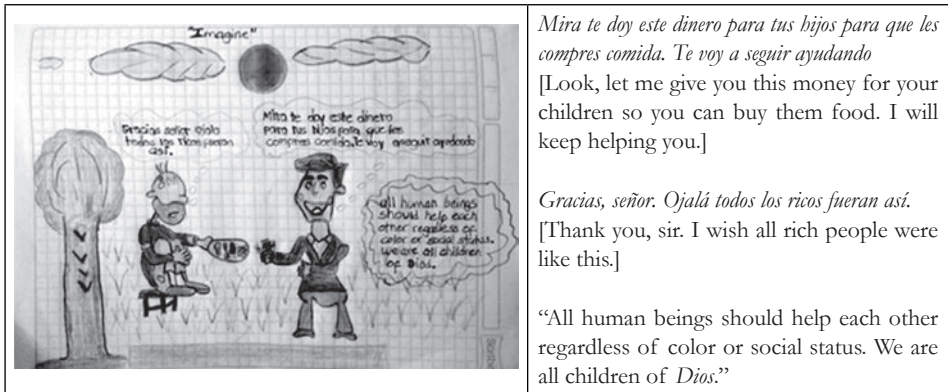 "Imagine"
Gracias señor Ojala
todos los ricos fueran
así.
Mira te doy este dinero
para tus hijos para que les
compres comida. Te voy a seguir ayudando
all human beings
should help each
other regardless of
color or social status.
we are all children
of Dios.
Mira te doy este dinero para tus hijos para que les
compres comida. Te voy a seguir ayudando
[Look, let me give you this money for your
children so you can buy them food. I will
keep helping you.]
Gracias, señor. Ojalá todos los ricos fueran así.
[Thank you, sir. I wish all rich people were
like this.]
“All human beings should help each other
regardless of color or social status. We are
all children of Dios.”